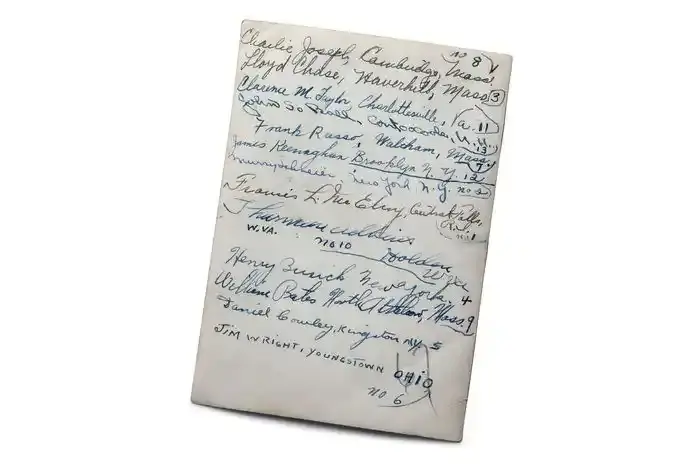 Charlie Joseph, Cambridge, Mass. no 8
Lloyd Chase, Haverhill, Mass 3
Clarence M. Taylor, Charlottesville, Va. 11
John So N.H. 13
Frank Russo, Waltham, Mass. 7
James Keenaghan Brooklyn N.Y. 12
Murray New York N.Y. no 2
Francis L. McElroy, Central Falls,
R.I. no 1
Thurman Adkins
W.VA. no 10 Holden W.Va
Henry Busich New York. 4
William Bates North Attleboro, Mass. 9
Daniel Cowley, Kingston NY. 5
JIM WRIGHT, YOUNGSTOWN OHIO
no 6